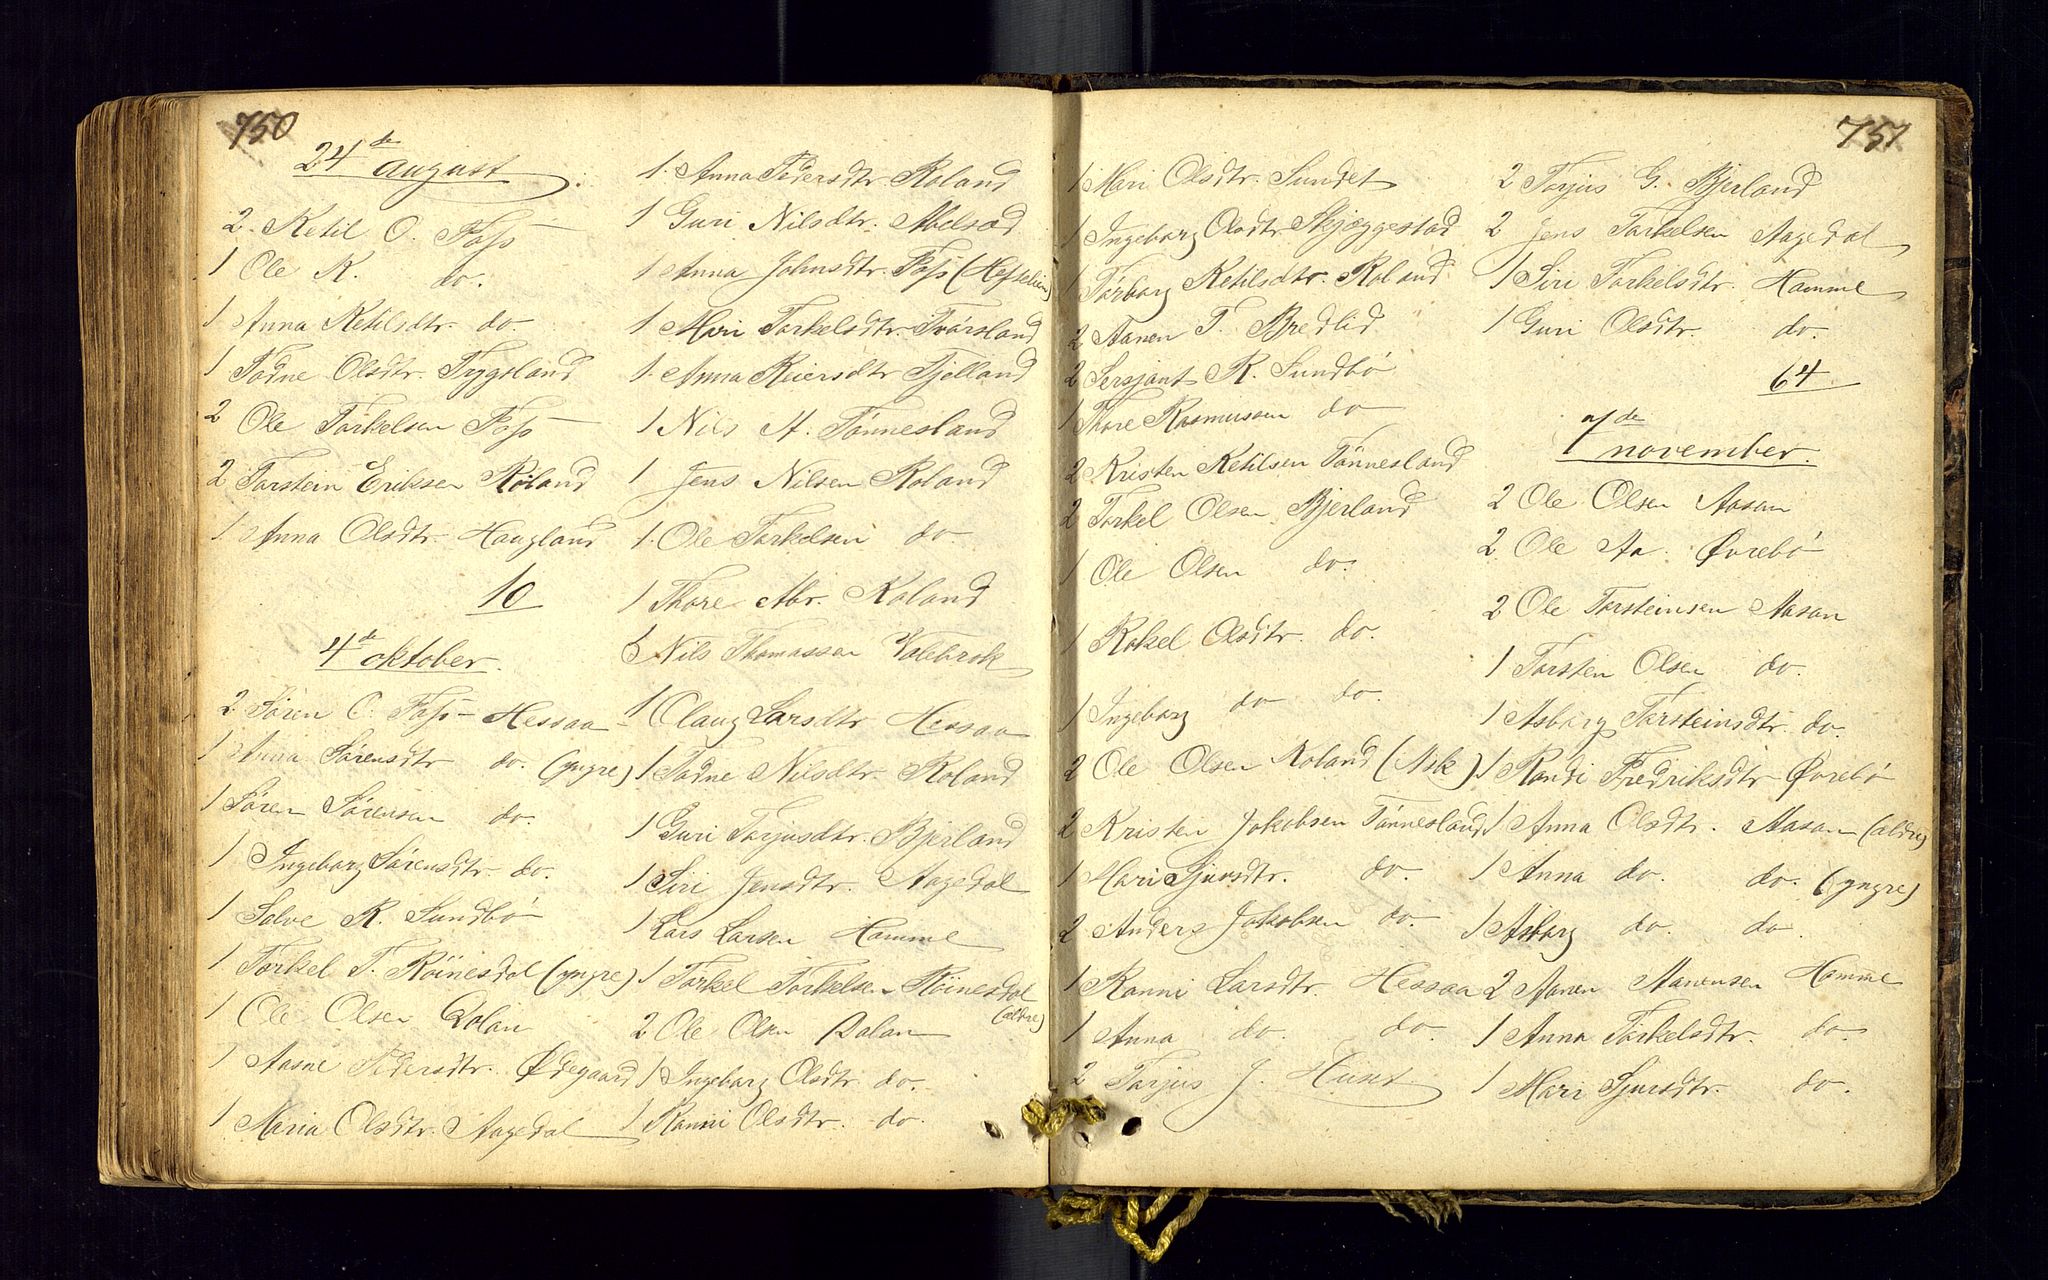 750
24de august
2 Ketil O. Foss
1 Ole K. do.
1 Anna Ketilsdtr. do.
1 Todne Olsdtr. Trygsland
2 Ole Torkelsen Foss
2 Torstein Eriksen Röland
1 Anna Olsdtr. Haugland
10
4de oktober.
2 Sören C. Foss - Hessaa
1 Anna Sörensdtr do. (yngre)
1 Sören Sörensen do.
1 Ingeborg Sörensdtr. do.
1 Salve R. Sundbö
1 Torkel T. Röinesdal (yngre)
1 Ole Olsen Dolan
1 Aasne Pedersdtr. Ødegaard
1 Maria Olsdtr. Aagedal
1. Anna Pedersdtr. Roland
1 Guri Nilsdtr. Abelsæd
1 Anna Johnsdtr. Foss
1 Mari Torkelsdtr. Tvörsland
1. Anna Reiersdtr Fjelland
1 Nils A. Tönnesland
1 Jens Nilsen Roland
1. Ole Torkelsen do.
1 Thore Abr. Roland
Nils Thomassen
1 Olaug Larsdtr Hessaa
1 Todne Nilsdtr. Roland
1 Guri Torjusdtr. Bjerland
1 Siri Jensdtr. Aagedal
1 Lars Larsen Homme
1 Torkel Torkelsen Röinesdal
(eldre)
2 Ole Olsen Dalan
1 Ingeborg Olsdtr. do.
1 Ranni Olsdtr. do.
751
1 Mari Olsdtr. Sundet
1 Ingeborg Olsdtr Skjæggestad
1 Torborg Ketilsdtr. Roland
2 Aanen T. Bredlid
2 Sersjant R. Sundbö
1 Thore Rasmussen do
2 Kristen Ketilsen Tönnesland
2 Torkel Olsen Bjerland
1 Ole Olsen do.
1 Rakel Olsdtr. do.
1 Ingeborg do do.
2 Ole Olsen Roland (Ask)
2 Kristen Jakobsen Tönnesland
1 Mari Sjursdtr. do.
2 Anders Jakobsen do.
1 Ranni Larsdtr. Hessaa
1 Anna do. do.
2 Torjus J. Huset
2 Torjus G. Bjerland
2 Jens Torkelsen Aagedal
1 Siri Torkelsdtr. Homme
1 Guri Olsdtr. do.
64
7de november.
2 Ole Olsen Aasan
2 Ole Aa. Øvrebö
2 Ole Torsteinsen Aasan
1 Torsten Olsen do.
1 Asborg Torsteinsdtr. do.
1 Randi Fredriksdtr Øvrebö
1 Anna Olsdtr. Aasan (eldre)
1 Anna do. do. (yngre)
1 Asborg do. do.
2 Aanen Aanensen Homme
1 Anna Torkelsdtr. do.
1 Mari Sjursdtr. do.